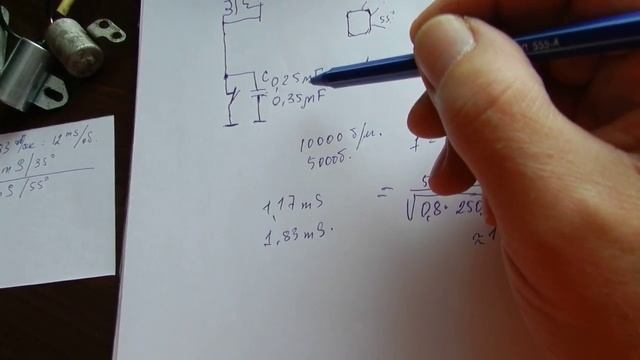 55°
C 0,25 mF
0,35 mF
10000 б/м.
5000б.
f =
1,17 mS
1,83 mS.
=
√0,8 · 250
≈ 1
= 12 mS/об.
mS/35°
mS/55°
555-A